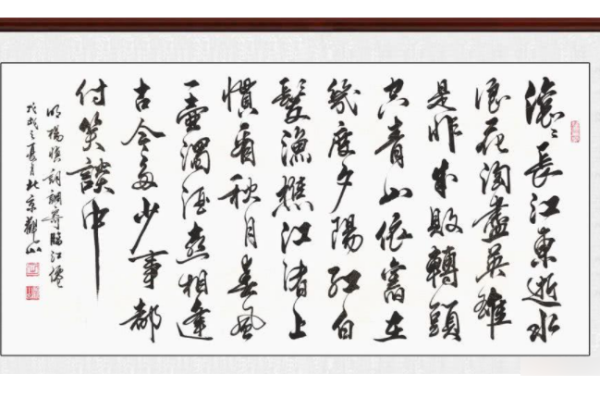 滚〻長江東逝水
浪花淘盡英雄
是非成敗轉頭
空青山依舊在
幾度夕陽紅白
髮漁樵江渚上
慣看秋月春風
一壺濁酒喜相逢
古今多少事都
付笑談中
明楊慎詞調寄臨江僊
之夏月北京